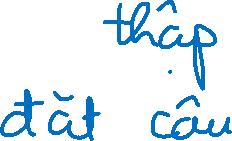 thập
đặt câu